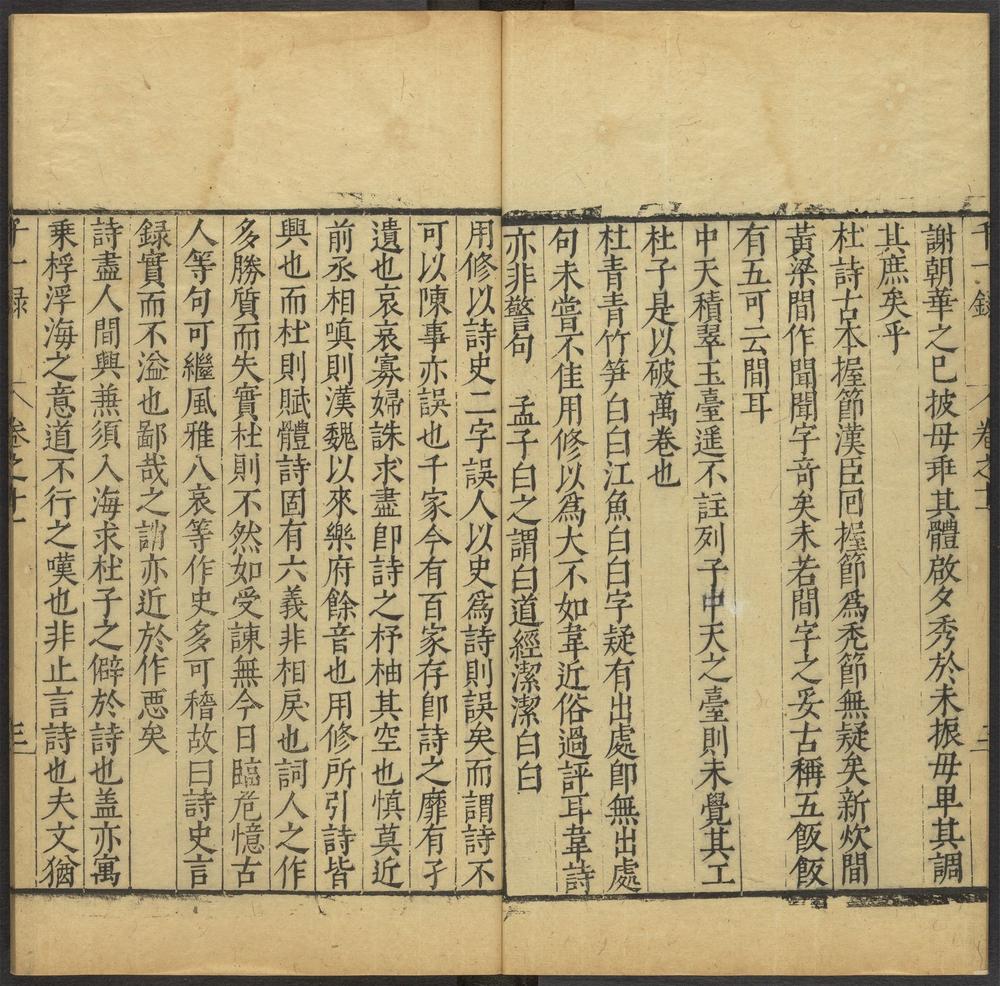 千一錄 卷之十一 三
謝朝華之已披毋乖其體啟夕秀於未振毋卑其調
其庶矣乎
杜詩古本握節漢臣囘握節爲禿節無疑矣新炊間
黃粱間作聞聞字奇矣未若間字之妥古稱五飯飯
有五可云間耳
中天積翠玉臺遥不註列子中天之臺則未覺其工
杜子是以破萬卷也
杜青青竹笋白白江魚白白字疑有出處卽無出處
句未嘗不佳用修以爲大不如韋近俗過評耳韋詩
亦非警句 孟子白之謂白道經潔潔白白
用修以詩史二字誤人以史爲詩則誤矣而謂詩不
可以陳事亦誤也千家今有百家存卽詩之靡有孑
遺也哀哀寡婦誅求盡卽詩之杼柚其空也慎莫近
前丞相嗔則漢魏以來樂府餘音也用修所引詩皆
興也而杜則賦體詩固有六義非相戾也詞人之作
多勝質而失實杜則不然如受諫無今日臨危憶古
人等句可繼風雅八哀等作史多可稽故曰詩史言
錄實而不溢也鄙哉之謂亦近於作惡矣
詩盡人間興兼須入海求杜子之僻於詩也盖亦寓
乘桴浮海之意道不行之嘆也非止言詩也夫文猶
千一錄 卷之十一 三